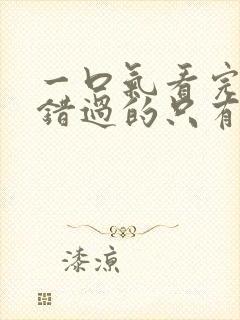 一口氣看完
錯過的只有
漆涼